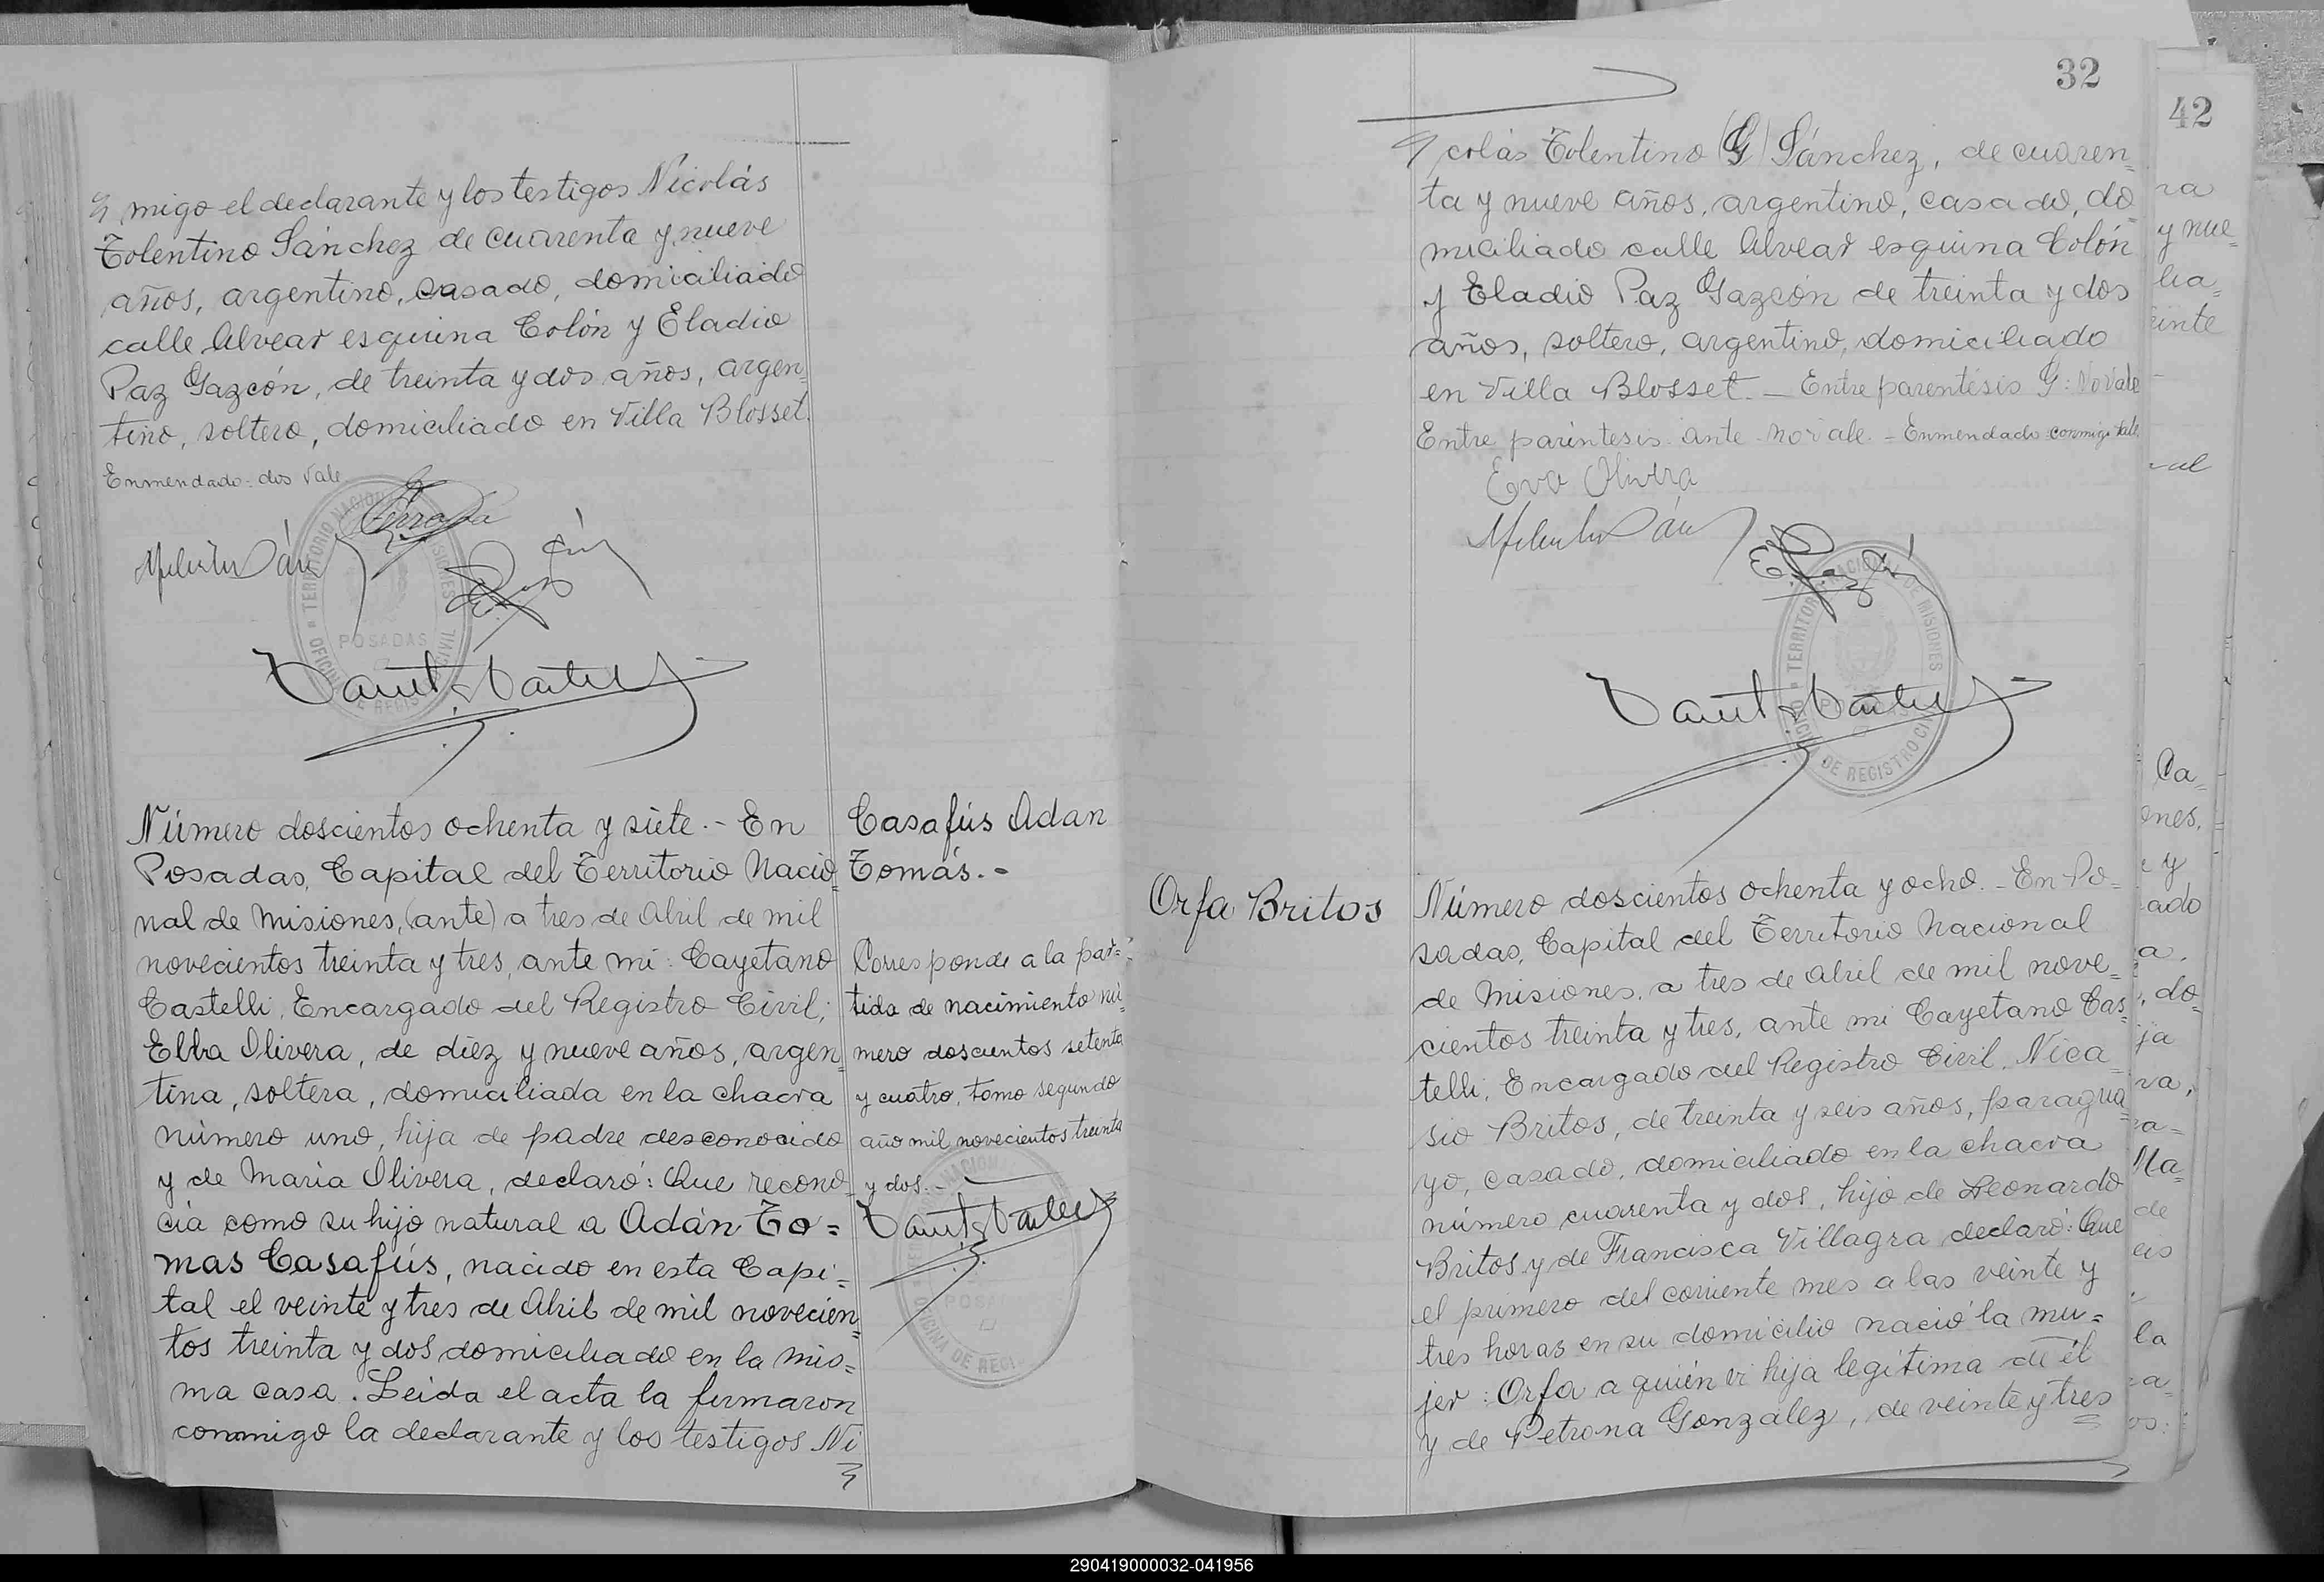 migo el declarante y los testigos Nicolás
Tolentino Sánchez de cuarenta y nueve
años, argentino, casado, domiciliado
calle Alvear esquina Colón y Eladio
Paz Gazcón, de treinta y dos años, argen=
tino, soltero, domiciliado en Villa Blosset.
Enmendado: dos Vale
TERRITORIO NACIONAL DE MISIONES
POSADAS
OFICINA DE REGISTRO CIVIL
Número doscientos ochenta y siete.- En
Posadas, Capital del Territorio Nacio=
nal de Misiones, (ante) a tres de Abril de mil
novecientos treinta y tres, ante mi: Cayetano
Castelli, Encargado del Registro Civil;
Elba Olivera, de diez y nueve años, argen=
tina, soltera, domiciliada en la chacra
número uno, hija de padre desconocido
y de María Olivera, declaró: Que recono=
cía como su hijo natural a Adán To=
mas Casafús, nacido en esta Capi=
tal el veinte y tres de Abril de mil novecien=
tos treinta y dos domiciliado en la mis=
ma casa. Leida el acta la firmaron
conmigo la declarante y los testigos Ni
Casafús Adan
Tomás.-
Corresponde a la par=
tida de nacimiento nú=
mero doscientos setenta
y cuatro, tomo segundo
año mil novecientos treinta
y dos.-
POSADAS
OFICINA DE REGI
32
colás Tolentino (G) Sánchez, de cuaren=
ta y nueve años, argentino, casado, do=
miciliado calle Alvear esquina Colón
y Eladio Paz Gazcón de treinta y dos
años, soltero, argentino, domiciliado
en Villa Blosset.- Entre parentesis G: No Vale
Entre paréntesis-ante-No vale.-Enmendado:conmigo vale
Eva Olivera
E. Paz
TERRITORIO NACIONAL DE MISIONES
POSADAS
OFICINA DE REGISTRO CIVIL
Orfa Britos
Número doscientos ochenta y ocho.- En Po=
sadas, Capital del Territorio Nacional
de Misiones, a tres de Abril de mil nove=
cientos treinta y tres, ante mi Cayetano Cas=
telli, Encargado del Registro Civil, Nica
sio Britos, de treinta y seis años, paragua
yo, casado, domiciliado en la chacra
número cuarenta y dos, hijo de Leonardo
Britos y de Francisca Villagra declaró: Que
el primero del corriente mes a las veinte y
tres horas en su domicilio nació la mu=
jer: Orfa a quién es hija legítima de él
y de Petrona González, de veinte y tres
42
ra
y nue=
lia=
einte
al
Ca=
ones,
e y
ado
a,
, do=
ja
ra,
ra=
Ma=
de
eis
la
a=
os:
290419000032-041956